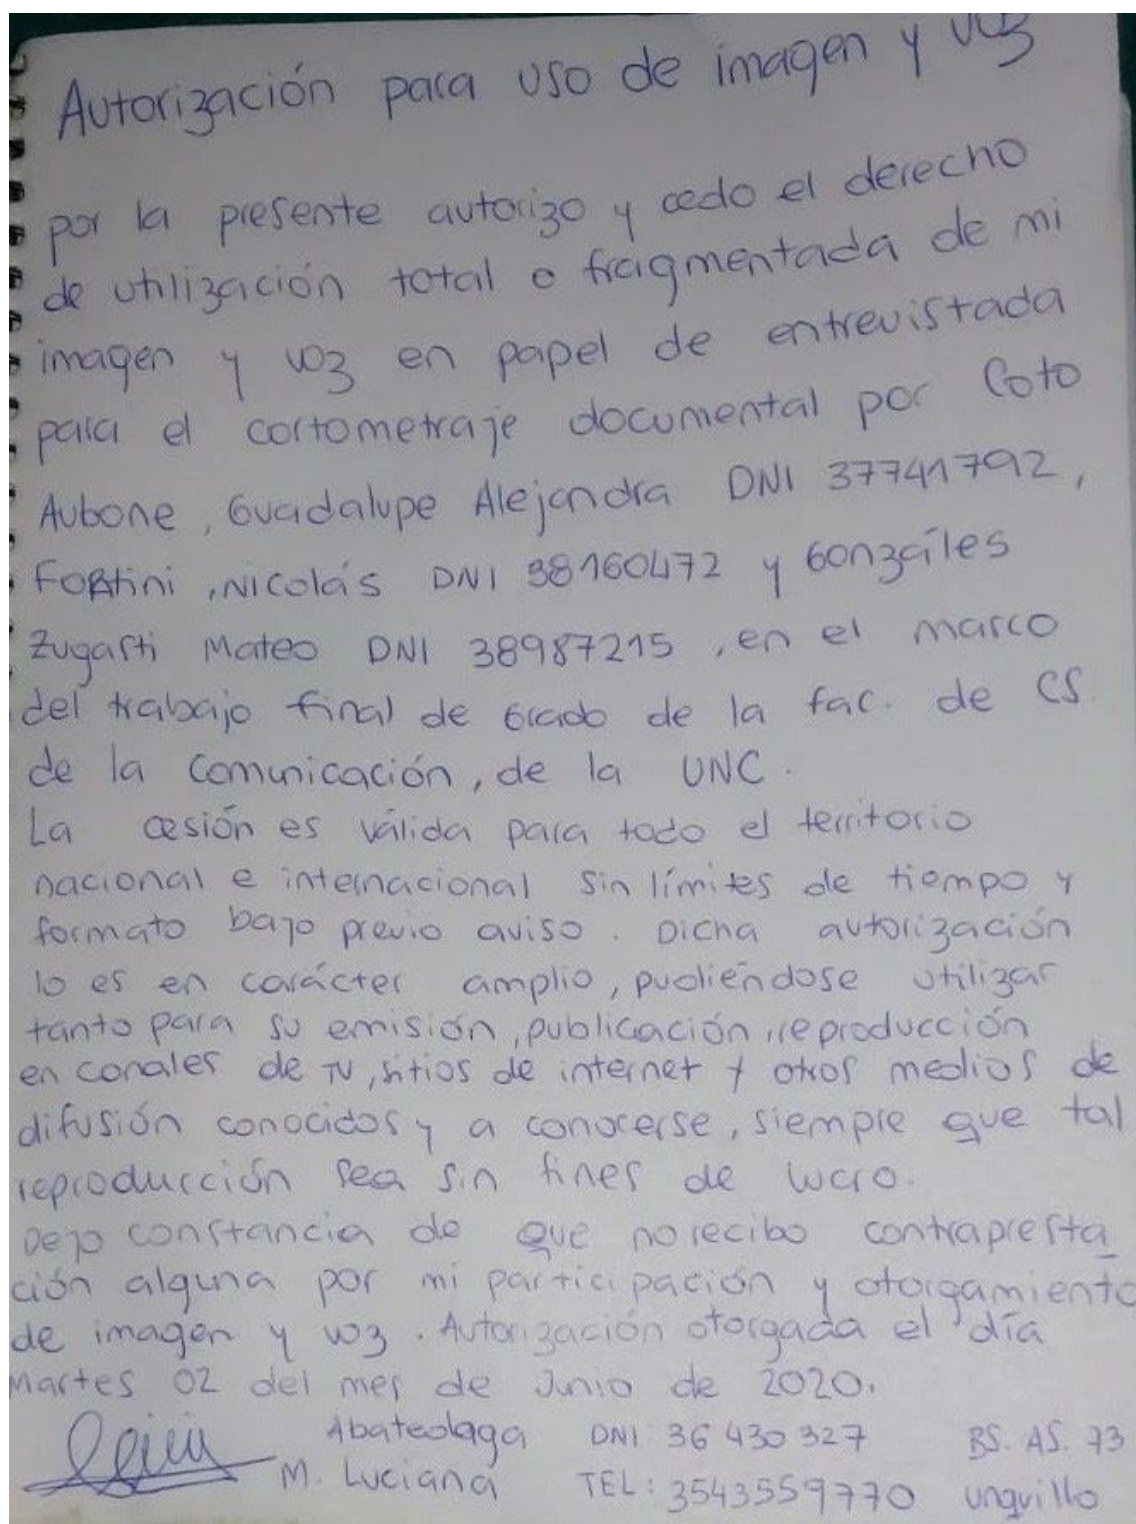 Autorización para uso de imagen y voz
por la presente autorizo y cedo el derecho
de utilización total o fragmentada de mi
imagen y voz en papel de entrevistada
para el cortometraje documental por Coto
Aubone, Guadalupe Alejandra DNI 37741792,
Fortini, Nicolás DNI 38160472 y Gonzáles
Zugasti Mateo DNI 38987215, en el marco
del trabajo final de Grado de la fac. de CS.
de la Comunicación, de la UNC.
La cesión es válida para todo el territorio
nacional e internacional sin límites de tiempo y
formato bajo previo aviso. Dicha autorización
lo es en carácter amplio, pudiéndose utilizar
tanto para su emisión, publicación, reproducción
en canales de TV, sitios de internet y otros medios de
difusión conocidos y a conocerse, siempre que tal
reproducción sea sin fines de lucro.
Dejo constancia de que no recibo contrapresta
ción alguna por mi participación y otorgamiento
de imagen y voz. Autorización otorgada el día
Martes 02 del mes de Junio de 2020.
Abateolaga DNI: 36 430 327 BS. AS. 73
M. Luciana TEL: 3543559770 Unquillo